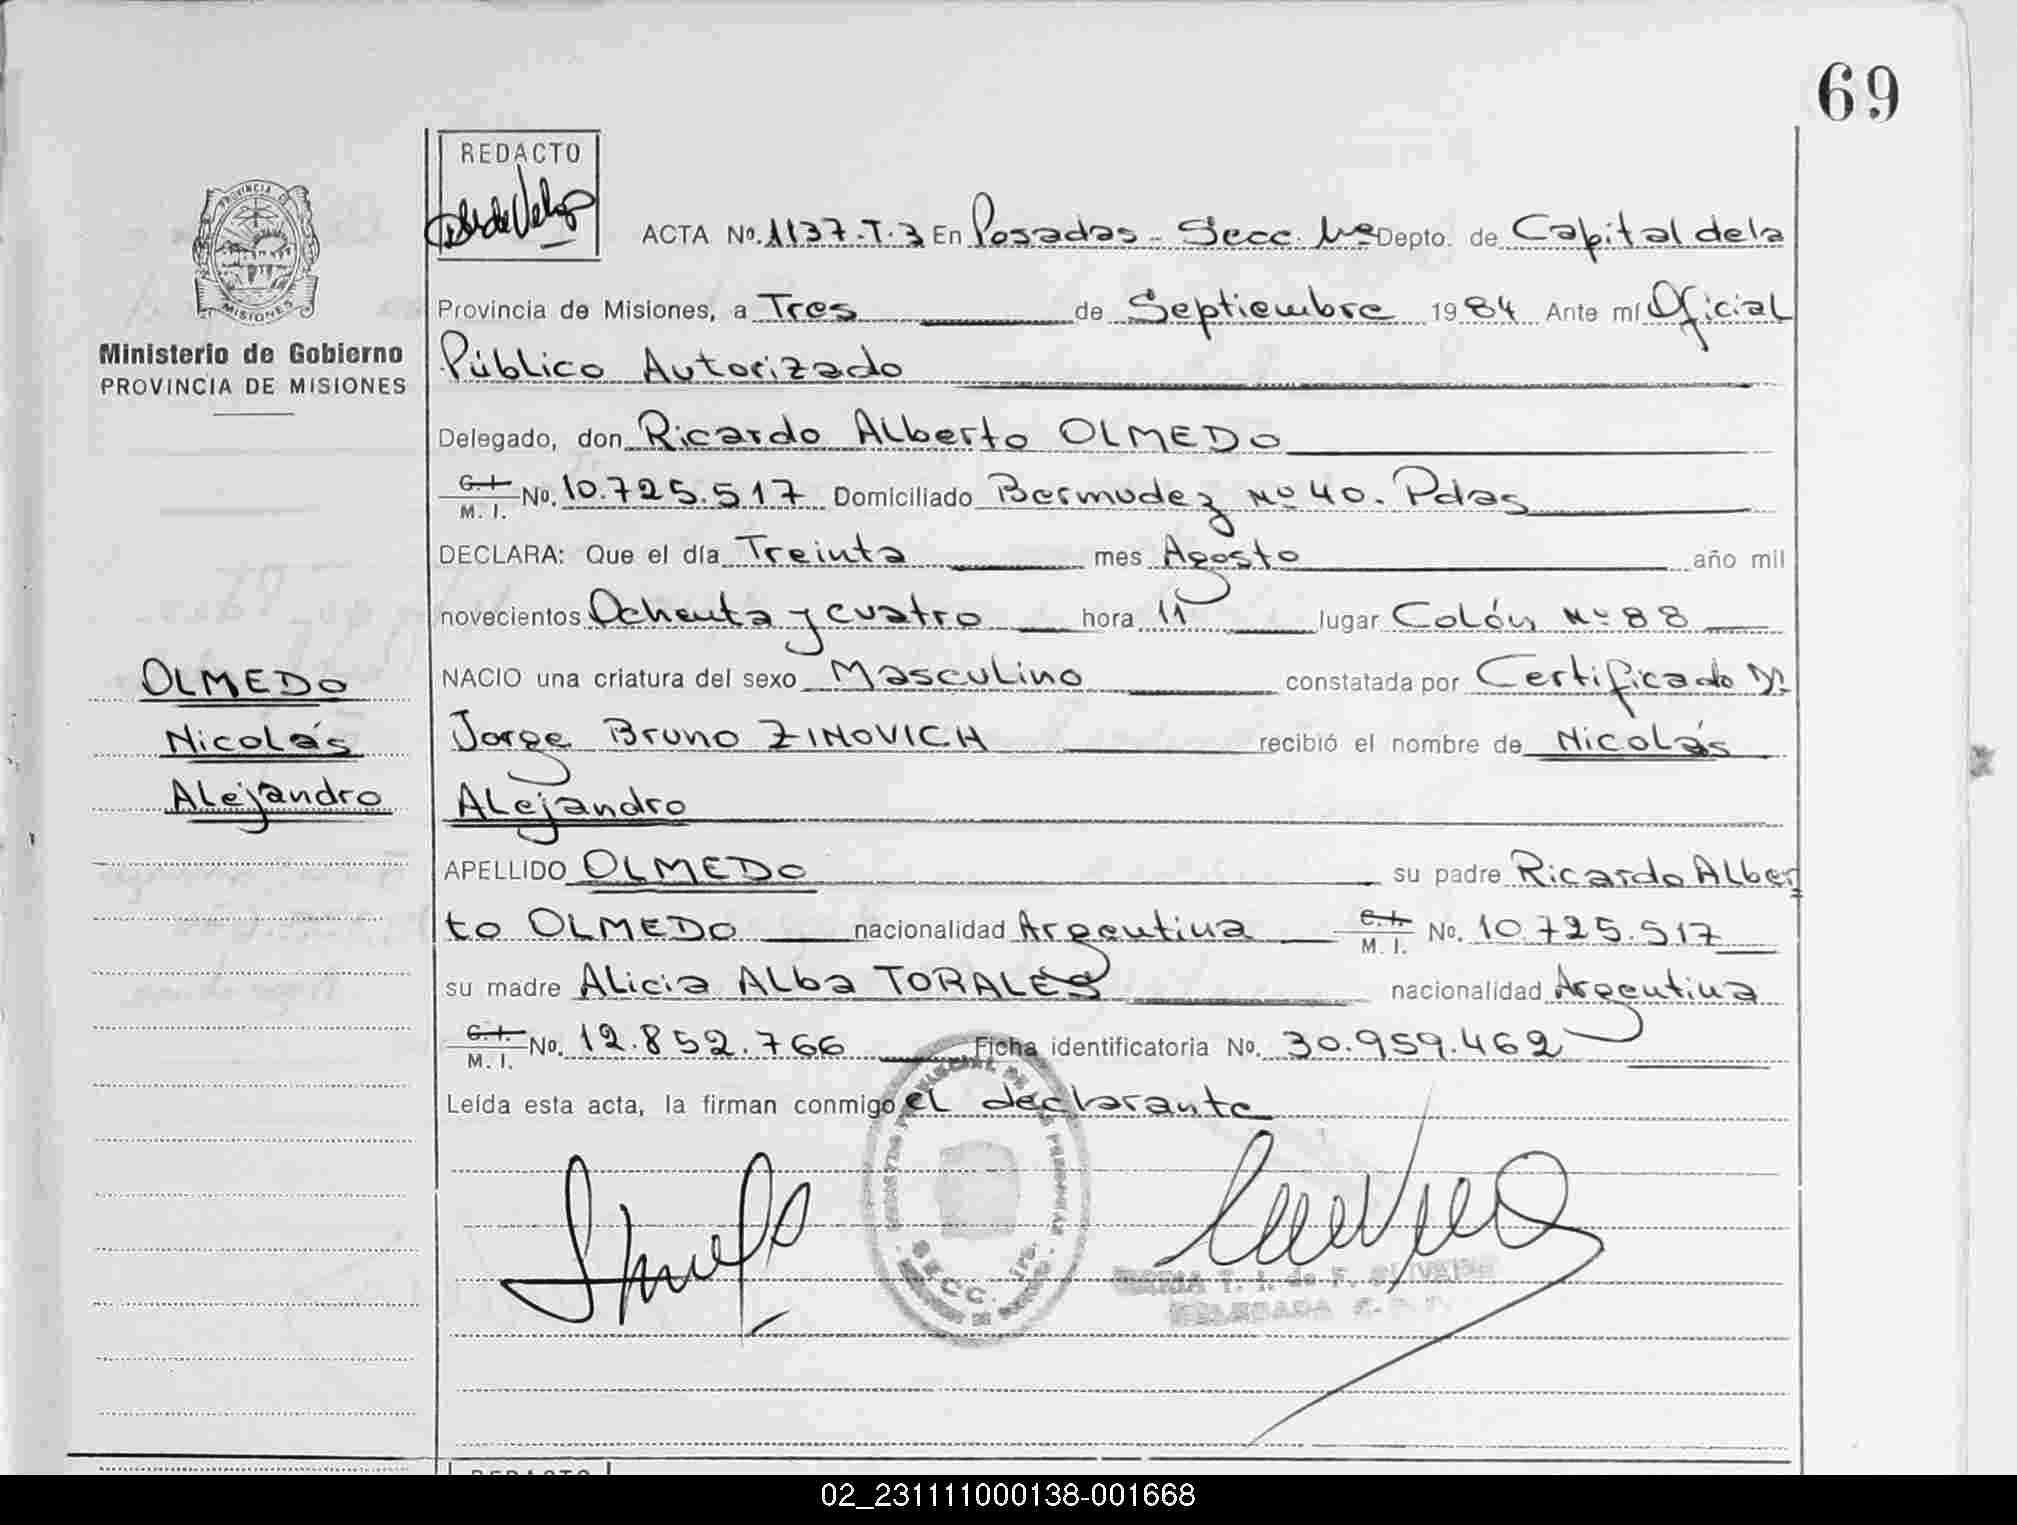 69
REDACTO
ACTA No. 1137.T.3 En Posadas - Secc. 1ra Depto. de Capital de la
PROVINCIA DE
MISIONES
Provincia de Misiones, a Tres de Septiembre 1984 Ante mí Oficial
Ministerio de Gobierno
PROVINCIA DE MISIONES
Público Autorizado
Delegado, don Ricardo Alberto OLMEDO
C.I. M. I. No. 10.725.517 Domiciliado Bermudez Nº 40. Pdas
DECLARA: Que el día Treinta mes Agosto año mil
novecientos Ochenta y cuatro hora 11 lugar Colón Nº 88
NACIO una criatura del sexo Masculino constatada por Certificado Dr.
Jorge Bruno ZINOVICH recibió el nombre de Nicolás
Alejandro
OLMEDO
Nicolás
Alejandro
APELLIDO OLMEDO su padre Ricardo Alber
to OLMEDO nacionalidad Argentina C.I. M. I. No. 10.725.517
su madre Alicia Alba TORALES nacionalidad Argentina
C.I. M. I. No. 12.852.766 Ficha identificatoria No. 30.959.462
Leída esta acta, la firman conmigo el declarante
PROVINCIAL DE LAS PERSONAS
SECC. 1ra.
MARIA T. I. de F. OLIVEIRA
DELEGADA
REDACTO
02_231111000138-001668